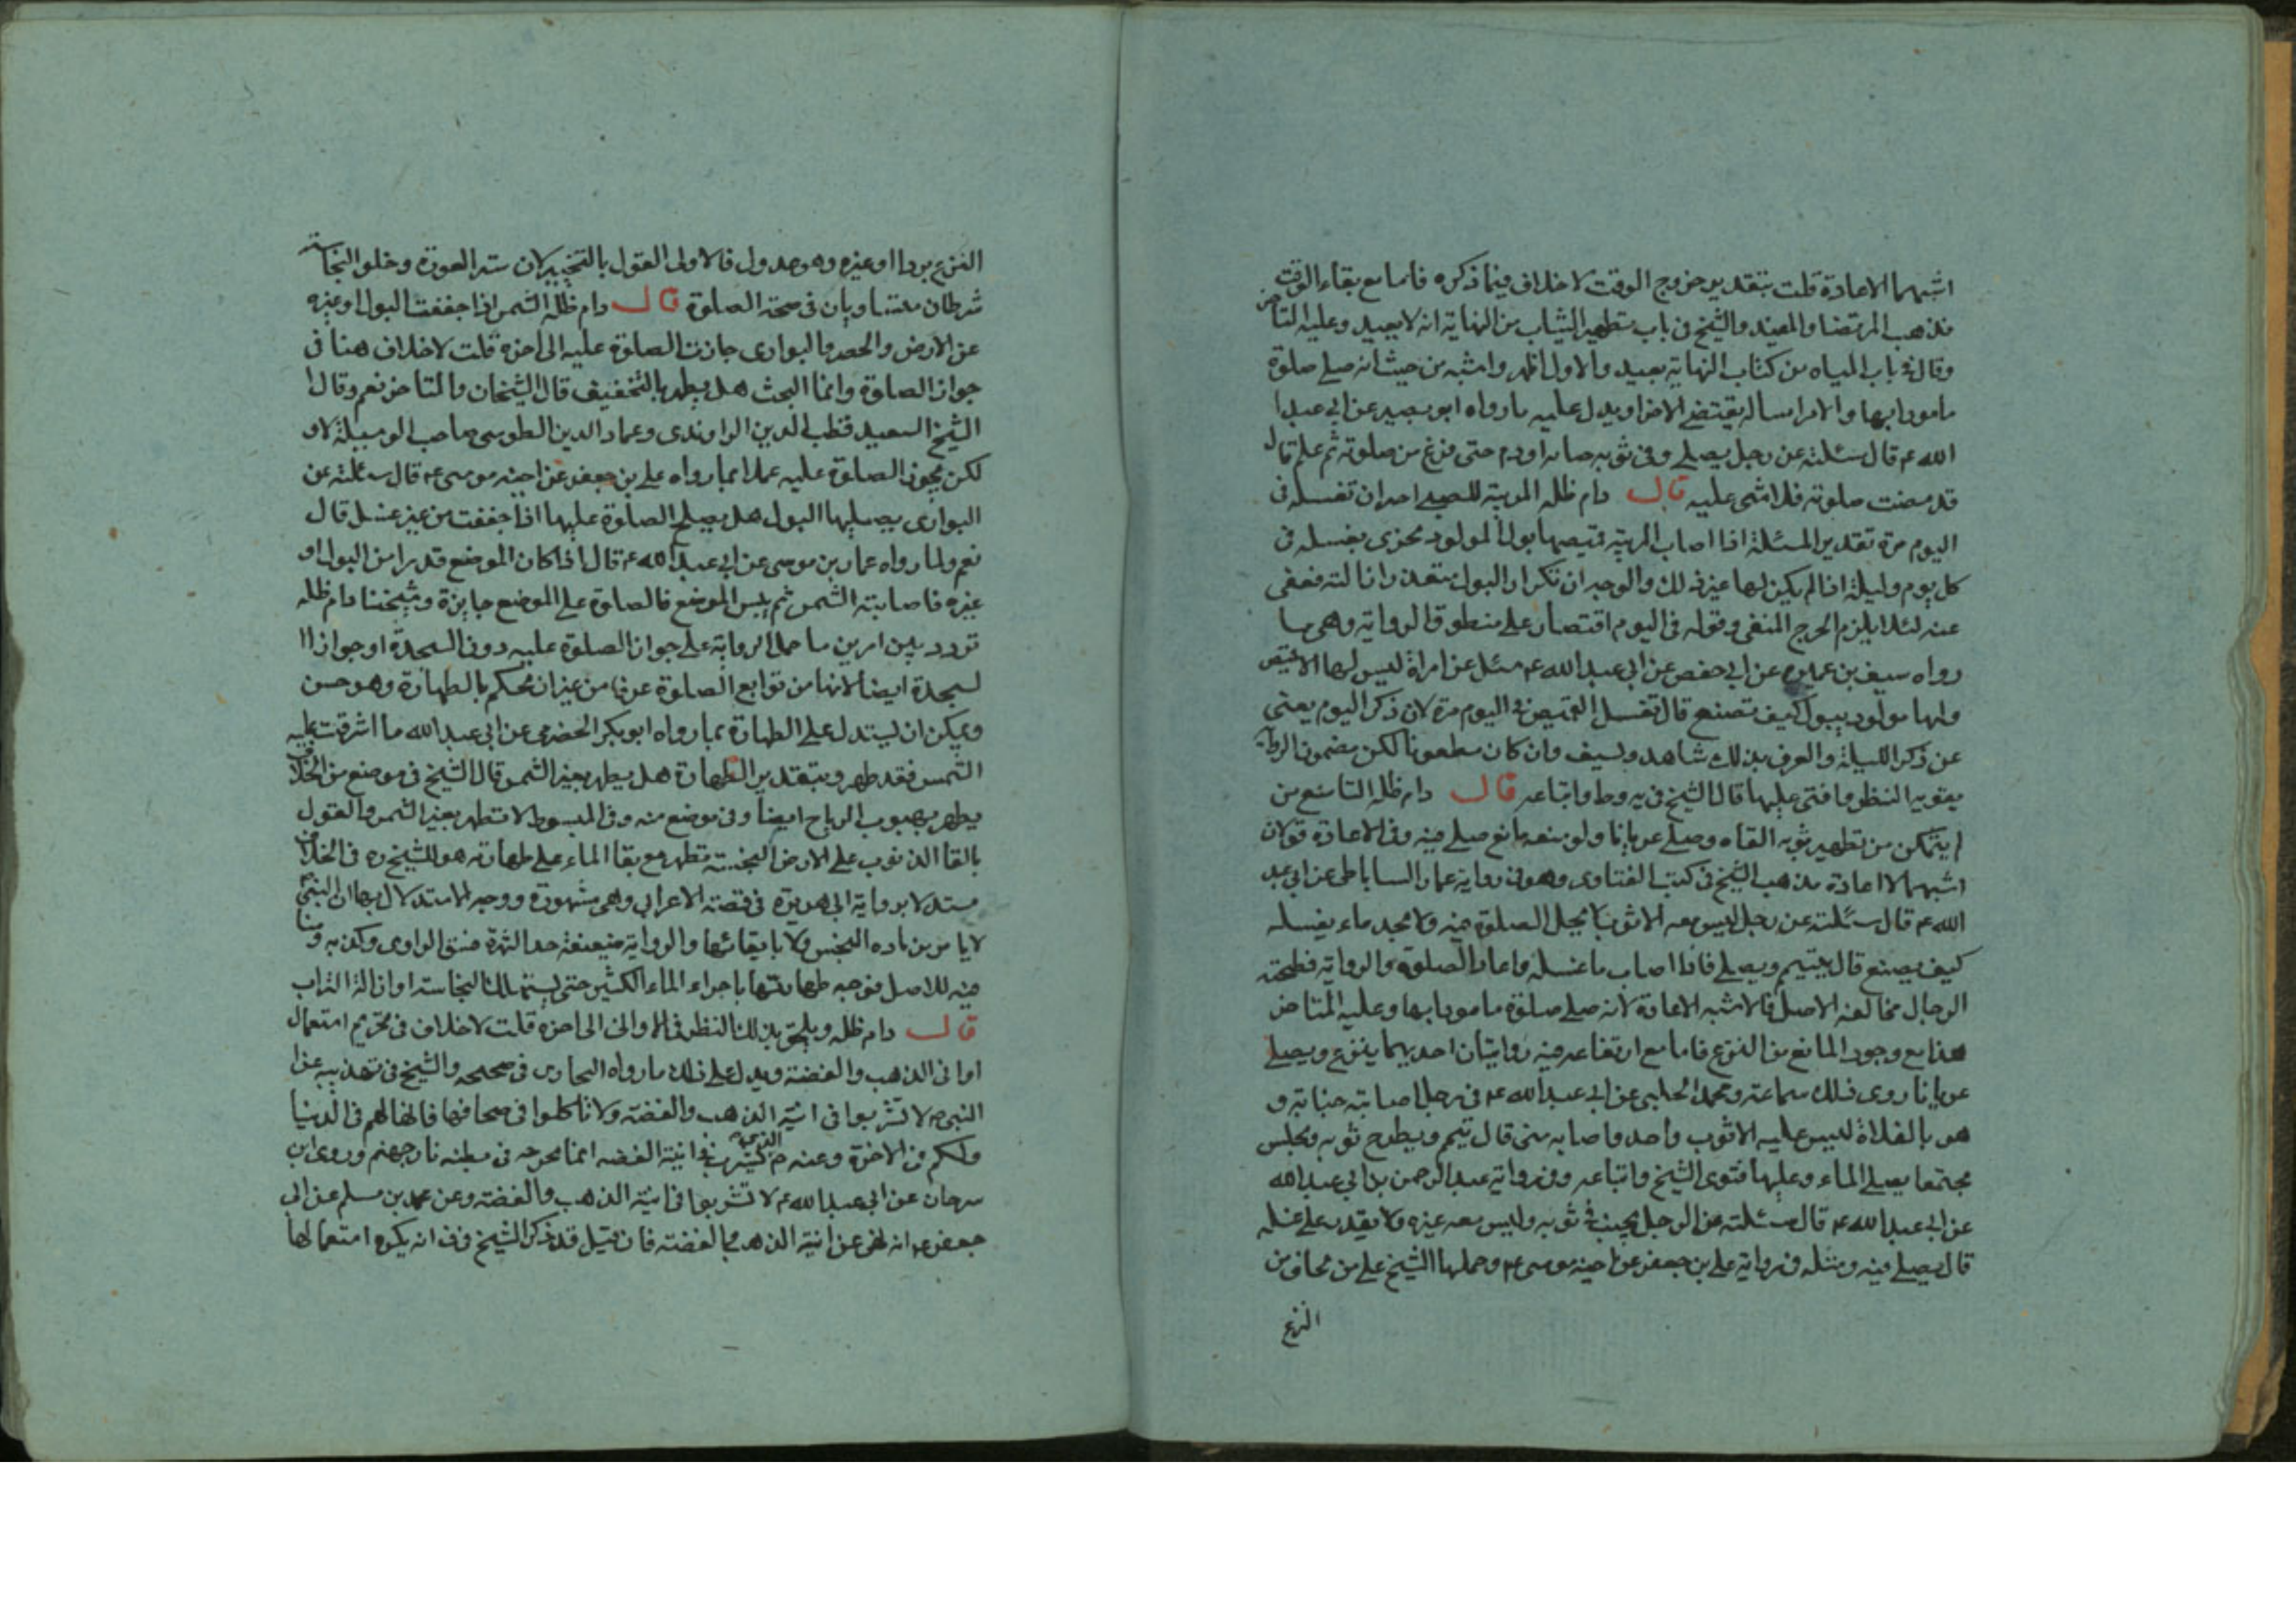 اشبههما الاعادة قلت بتقدير خروج الوقت لا خلاف فيما ذكره فاما مع بقاء الوقت
فذهب المرتضا والمفيد والشيخ في باب تطهير الثياب من النهاية انه لا يعيد وعليه المتاخر
وقال في باب المياه من كتاب النهاية يعيد والاول اظهر واشبه من حيث انه صلى صلوة
مامورا بها والامر اساله يقتضي الاجزا ويدل عليه ما رواه ابو بصير عن ابي عبدا
الله ع قال سئلته عن رجل يصلي وفي ثوبه جنابه او دم حتى فرغ من صلوته ثم علم قال
قد مضت صلوته فلا شئ عليه قال دام ظله المربية للصبي احدان تغسله في
اليوم مرة تقدير المسئلة اذا اصاب المربية قميصها بول المولود يجزى بغسله في
كل يوم وليلة اذا لم يكن لها غير ذلك والوجه ان تكرار البول متعذر ازالته فعفى
عنه لئلا يلزم الحرج المنفى وقوله في اليوم اقتصار على منطوق الرواية وهي ما
رواه سيف بن عميره عن ابي حفص عن ابي عبد الله ع سئل عن امراة ليس لها الا قميص
ولها مولود يبول كيف تصنع قال تغسل القميص في اليوم مرة لان ذكر اليوم يعنى
عن ذكر الليلة والعرف بذلك شاهد وسيف وان كان مطعونا لكن مضمون الرواية
يقويه النظر وافتى عليها قال الشيخ في يه وط واتباعه قال دام ظله التاسع من
لم يتمكن من تطهير ثوبه القاه وصلى عريانا ولو منعه مانع صلى فيه وفي الاعادة قولان
اشبههما لا اعادة مذهب الشيخ في كتب الفتاوى وهو في رواية عمار الساباطي عن ابي عبد
الله ع قال سئلته عن رجل ليس معه الا ثوب لا يحل الصلوة فيه ولا يجد ماء يغسله
كيف يصنع قال يتيمم ويصلي فاذا اصاب ماء غسله واعاد الصلوة والرواية فطحية
الرجال مخالفة الاصل فالاشبه الاعادة لانه صلى صلوة مامورا بها وعليه المتاخر
هذا مع وجود المانع من النزع فاما مع ارتفاعه فيه روايتان احديهما ينزع ويصلي
عريانا روى ذلك سماعة ومحمد الحلبي عن ابي عبد الله ع في رجل اصابته جنابة و
هو بالفلاة ليس عليه الا ثوب واحد واصابه منى قال تيمم ويطرح ثوبه ويجلس
مجتمعا يصلي الماء وعليها فتوى الشيخ واتباعه وفي رواية عبد الرحمن بن ابي عبد الله
عن ابي عبد الله ع قال سئلته عن الرجل يجنب في ثوبه وليس معه غيره ولا يقدر على غسله
قال يصلي فيه ومثله في رواية علي بن جعفر عن اخيه موسى ع وحملها الشيخ على من يخاف من
النزع
النزع بردا او غيره وهو عدول فالاولى القول بالتخيير لان ستر العورة وخلو النجاسة
شرطان متساويان في صحة الصلوة قال دام ظله الشمس اذا جففت البول او غيره
عن الارض والحصر والبوارى جازت الصلوة عليه الى اخره قلت لا خلاف هنا في
جواز الصلوة وانما البحث هل يطهر بالتخفيف قال الشيخان والمتاخر نعم وقال ا
الشيخ السعيد قطب الدين الراوندى وعماد الدين الطوسى صاحب الوسيلة لا و
لكن يجوز الصلوة عليه عملا بما رواه علي بن جعفر عن اخيه موسى ع قال سئلته عن
البوارى يصيبها البول هل يصلح الصلوة عليها اذا جففت من غير غسل قال
نعم ولما رواه عمار بن موسى عن ابي عبد الله ع قال اذا كان الموضع قذرا من البول او
غيره فاصابته الشمس ثم يبس الموضع فالصلوة على الموضع جايزة وشيخنا دام ظله
تردد بين امرين ما حمل الرواية على جواز الصلوة عليه دون السجدة او جواز ا
لسجدة ايضا لانها من توابع الصلوة عرفا من غير ان يحكم بالطهارة وهو حسن
ويمكن ان يستدل على الطهارة بما رواه ابو بكر الحضرمى عن ابي عبد الله ما اشرقت عليه
الشمس فقد طهر وبتقدير الطهارة هل يطهر بغير الشمس قال الشيخ في موضع من الخلاف
يطهر بهبوب الرياح ايضا وفي موضع منه وفي المبسوط لا تطهر بغير الشمس والقول
بالقا الذنوب على الارض النجسة تطهر مع بقا الماء على طهارته هو للشيخ ره في الخلاف
مستدلا برواية ابي هريرة في قصة الاعرابي وهي مشهورة ووجه الاستدلال بها ان النبي
لا يامر بزياده النجس ولا بابقائها والرواية ضعيفة حد الشهرة فسق الراوى وكذبه ومنا
فيه للاصل فوجه طهارتها باجراء الماء الكثير حتى يستهلك النجاسة او ازالة التراب
قال دام ظله ويلحق بذلك النظر في الاوانى الى اخره قلت لا خلاف في تحريم استعمال
اوانى الذهب والفضة ويدل على ذلك ما رواه البخارى في صحيحه والشيخ في تهذيبه عن ا
النبي ص لا تشربوا في انية الذهب والفضة ولا تاكلوا في صحافها فانها لهم في الدنيا
ولكم في الاخرة وعنه ص الذى يشرب في انية الفضه انما يجرجر في بطنه نار جهنم وروى ابن
سرحان عن ابي عبد الله ع لا تشربوا في انية الذهب والفضة وعن محمد بن مسلم عن ابى
جعفر ع انه نهى عن انية الذهب والفضة فان قيل قد ذكر الشيخ في ف انه يكره استعمالها